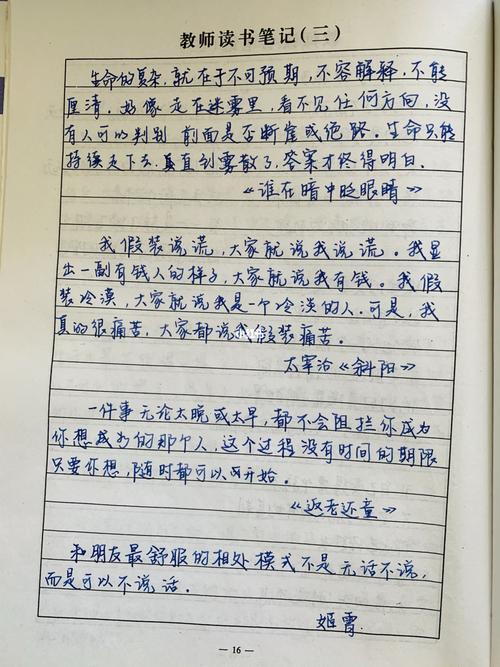 教师读书笔记(三)
生命的复杂,就在于不可预期,不容解释,不能
厘清,好像走在迷雾里,看不见任何方向,没
有人可以判别 前面是否断崖或绝路。生命只能
持续走下去,直到雾散了,答案才终得明白。
《谁在暗中眨眼睛》
我假装说谎,大家就说我说谎。我显
出一副有钱人的样子,大家就说我有钱。我假
装冷漠,大家就说我是一个冷淡的人。可是,我
真的很痛苦,大家都说我假装痛苦。
太宰治《斜阳》
一件事无论太晚或太早,都不会阻拦你成为
你想成为的那个人,这个过程没有时间的期限
只要你想,随时都可以开始。
《返老还童》
和朋友最舒服的相处模式不是无话不说,
而是可以不说话。
姬霄
— 16 —